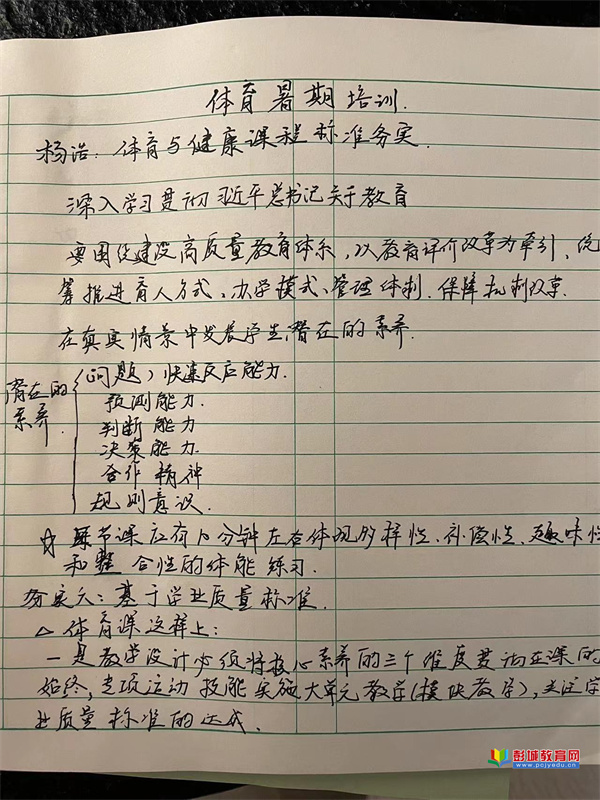 体育暑期培训.
杨浩: 体育与健康课程标准务实.
深入学习贯彻习近平总书记关于教育
要围绕建设高质量教育体系, 以教育评价改革为牵引, 统
筹推进育人方式、办学模式、管理体制、保障机制改革.
在真实情景中发展学生潜在的素养.
潜在的
素养.
(问题) 快速反应能力.
预测能力.
判断能力
决策能力.
合作精神
规则意识.
☆ 每节课应有10分钟左右体现多样性、补偿性、趣味性
和整合性的体能练习.
务实大: 基于学业质量标准.
△ 体育课这样上:
一是教学设计必须将核心素养的三个维度贯彻在课的
始终, 专项运动技能实施大单元教学(模块教学), 关注学
业质量标准的达成.
彭城教育网
www.pcjyedu.cn